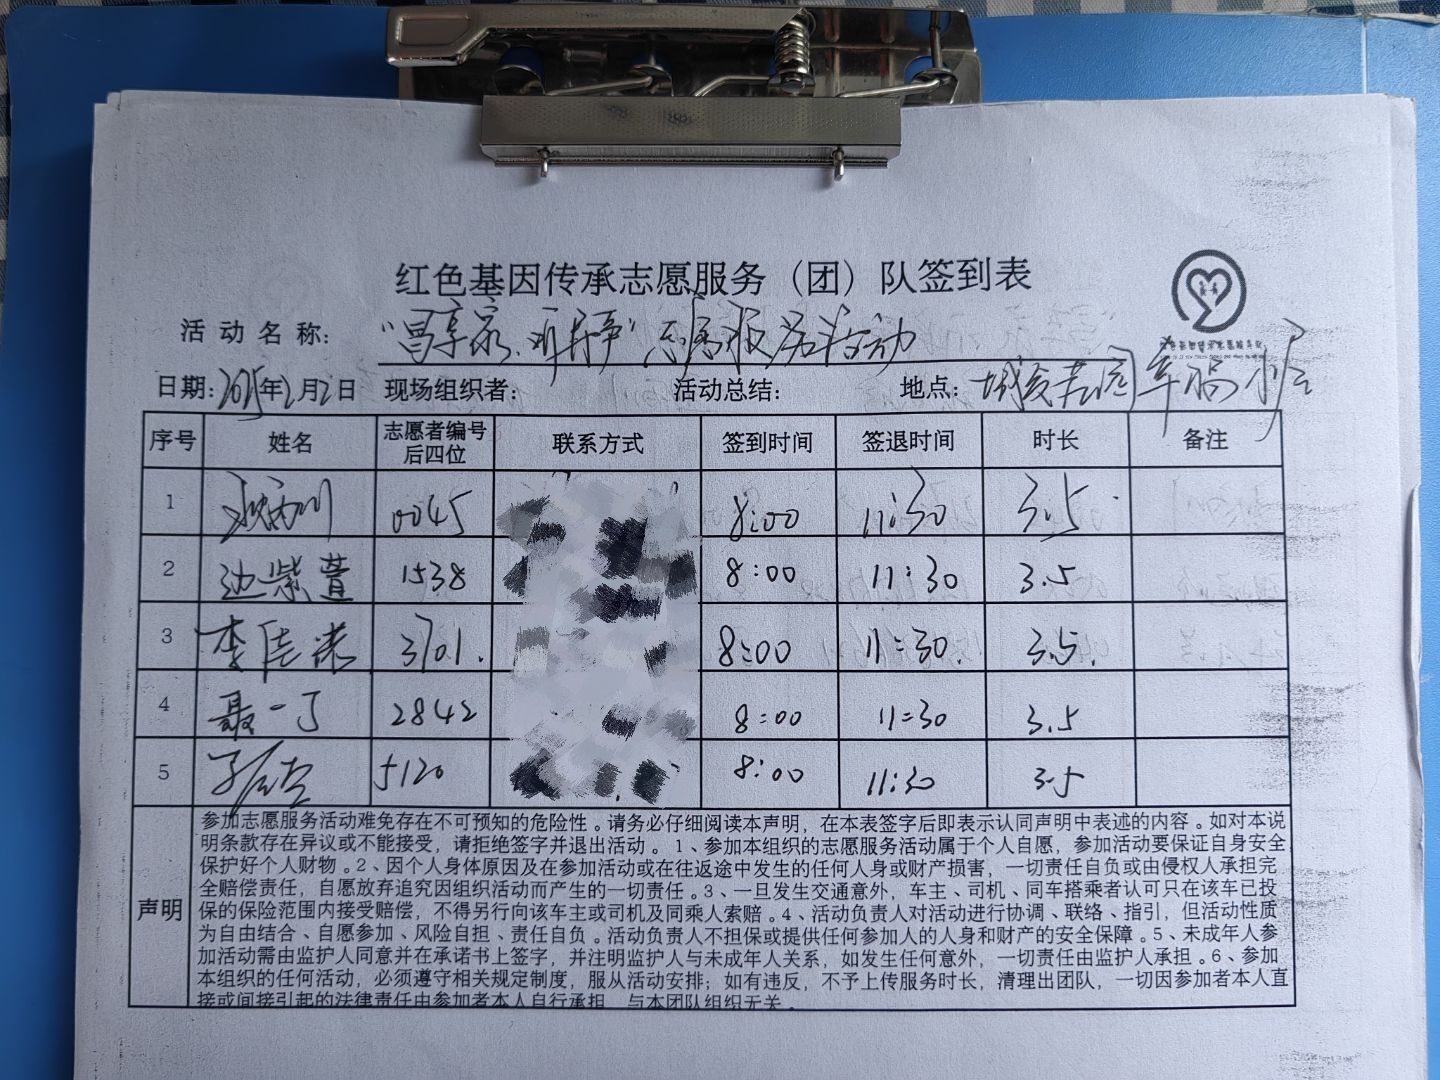 红色基因传承志愿服务（团）队签到表
活动名称： 志愿服务活动
日期：2025年2月2日 现场组织者： 活动总结： 地点： 幸福
序号 姓名 志愿者编号后四位 联系方式 签到时间 签退时间 时长 备注
1 0045 8:00 11:30 3.5
2 沈紫萱 1538 8:00 11:30 3.5
3 李佳 3701. 8:00 11:30. 3.5.
4 聂一丁 2842 8:00 11:30 3.5
5 5120 8:00 11:30 3.5
声明
参加志愿服务活动难免存在不可预知的危险性。请务必仔细阅读本声明，在本表签字后即表示认同声明中表述的内容。如对本说
明条款存在异议或不能接受，请拒绝签字并退出活动。1、参加本组织的志愿服务活动属于个人自愿，参加活动要保证自身安全
保护好个人财物。2、因个人身体原因及在参加活动或在往返途中发生的任何人身或财产损害，一切责任自负或由侵权人承担完
全赔偿责任，自愿放弃追究因组织活动而产生的一切责任。3、一旦发生交通意外，车主、司机、同车搭乘者认可只在该车已投
保的保险范围内接受赔偿，不得另行向该车主或司机及同乘人索赔。4、活动负责人对活动进行协调、联络、指引，但活动性质
为自由结合、自愿参加、风险自担、责任自负。活动负责人不担保或提供任何参加人的人身和财产的安全保障。5、未成年人参
加活动需由监护人同意并在承诺书上签字，并注明监护人与未成年人关系，如发生任何意外，一切责任由监护人承担。6、参加
本组织的任何活动，必须遵守相关规定制度，服从活动安排；如有违反，不予上传服务时长，清理出团队，一切因参加者本人直
接或间接引起的法律责任由参加者本人自行承担，与本团队组织无关。